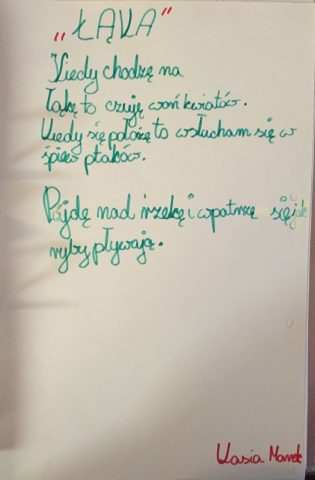 „ŁĄKA”
Kiedy chodzę na
łąkę to czuję woń kwiatów.
Kiedy się położę to wsłucham się w
śpiew ptaków.
Pójdę nad rzekę i wpatrzę się jak
ryby pływają.
Kasia Marek